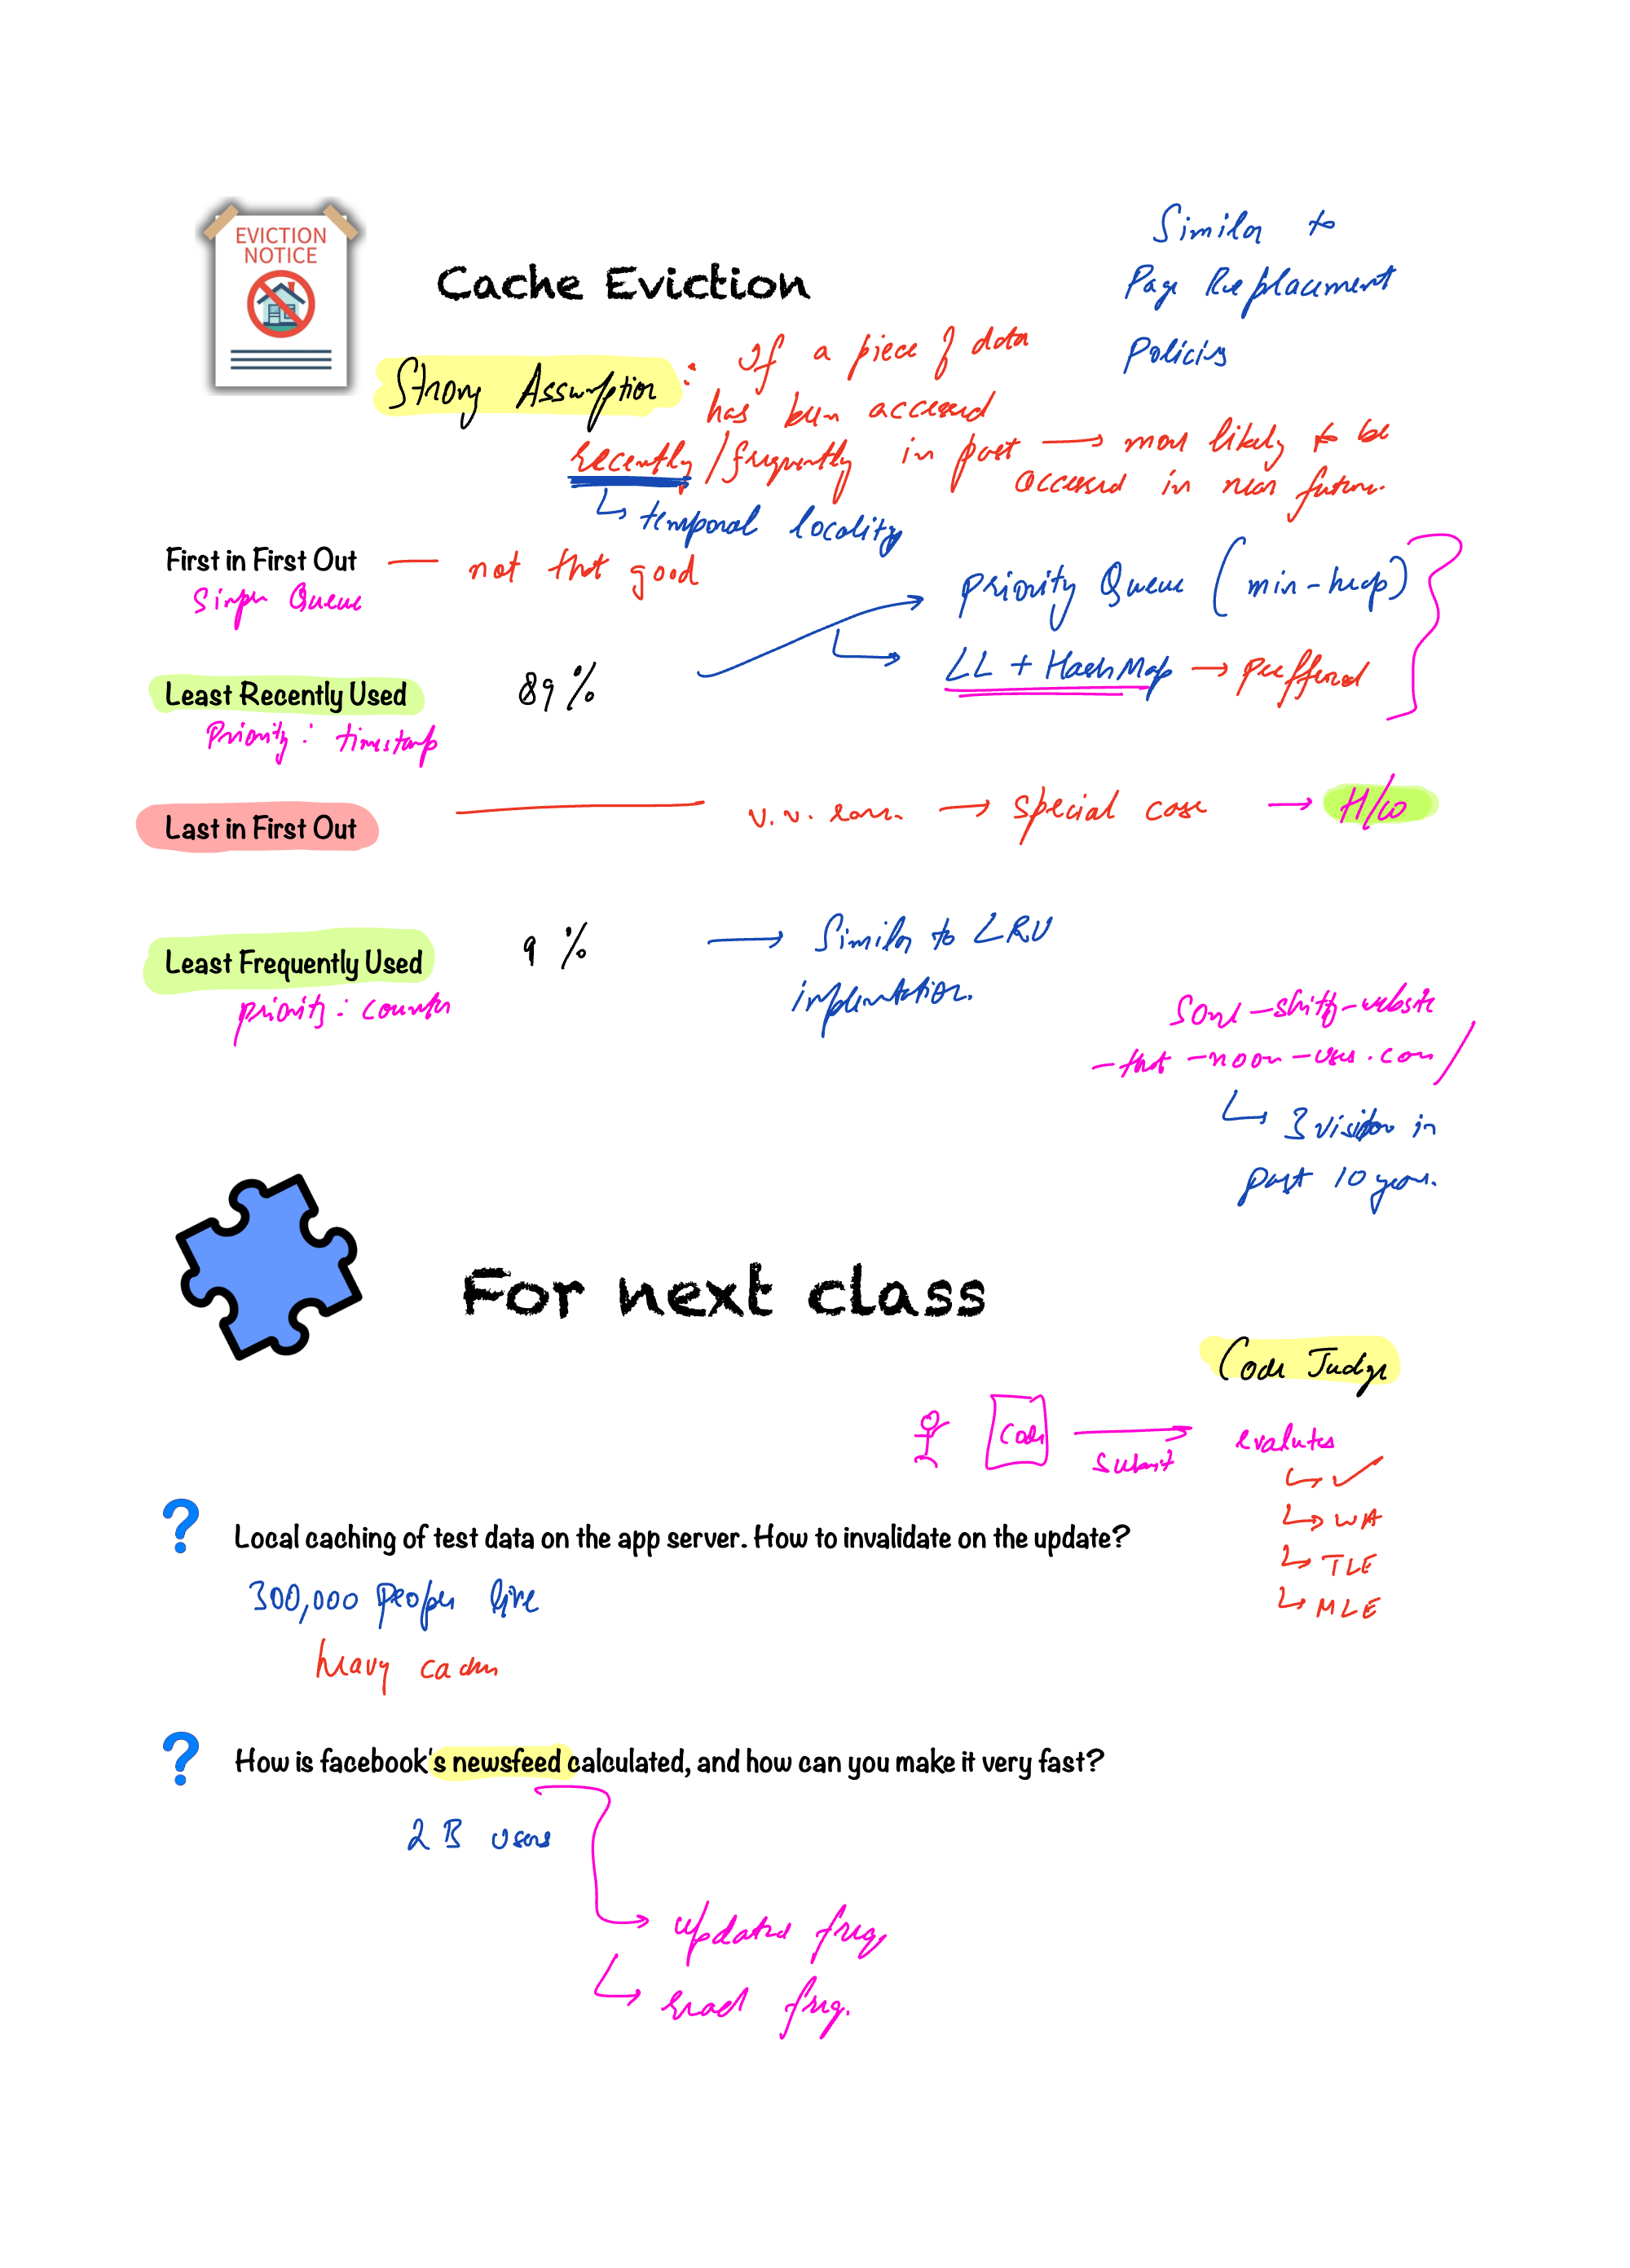 EVICTION
NOTICE
Cache Eviction
Similar to
Page Replacement
Policies
Strong Assumption : If a piece of data
has been accessed
recently/frequently in past → most likely to be
accessed in near future.
↳ temporal locality
First in First Out — not that good
Simple Queue
Priority Queue (min-heap)
LL + HashMap → preffered
Least Recently Used 89%
Priority: timestamp
Last in First Out — v.v. rare → special case → H/W
Least Frequently Used 9% → Similar to LRU
implementation.
priority: counter
some-shitty-website
-that-noone-uses.com/
↳ 3 visitor in
past 10 years.
For next class
Code Judge
Code submit evalutes
↳ ✓
↳ WA
↳ TLE
↳ MLE
? Local caching of test data on the app server. How to invalidate on the update?
300,000 people live
heavy cache
? How is facebook's newsfeed calculated, and how can you make it very fast?
2 B users
→ updated freq.
↳ read freq.